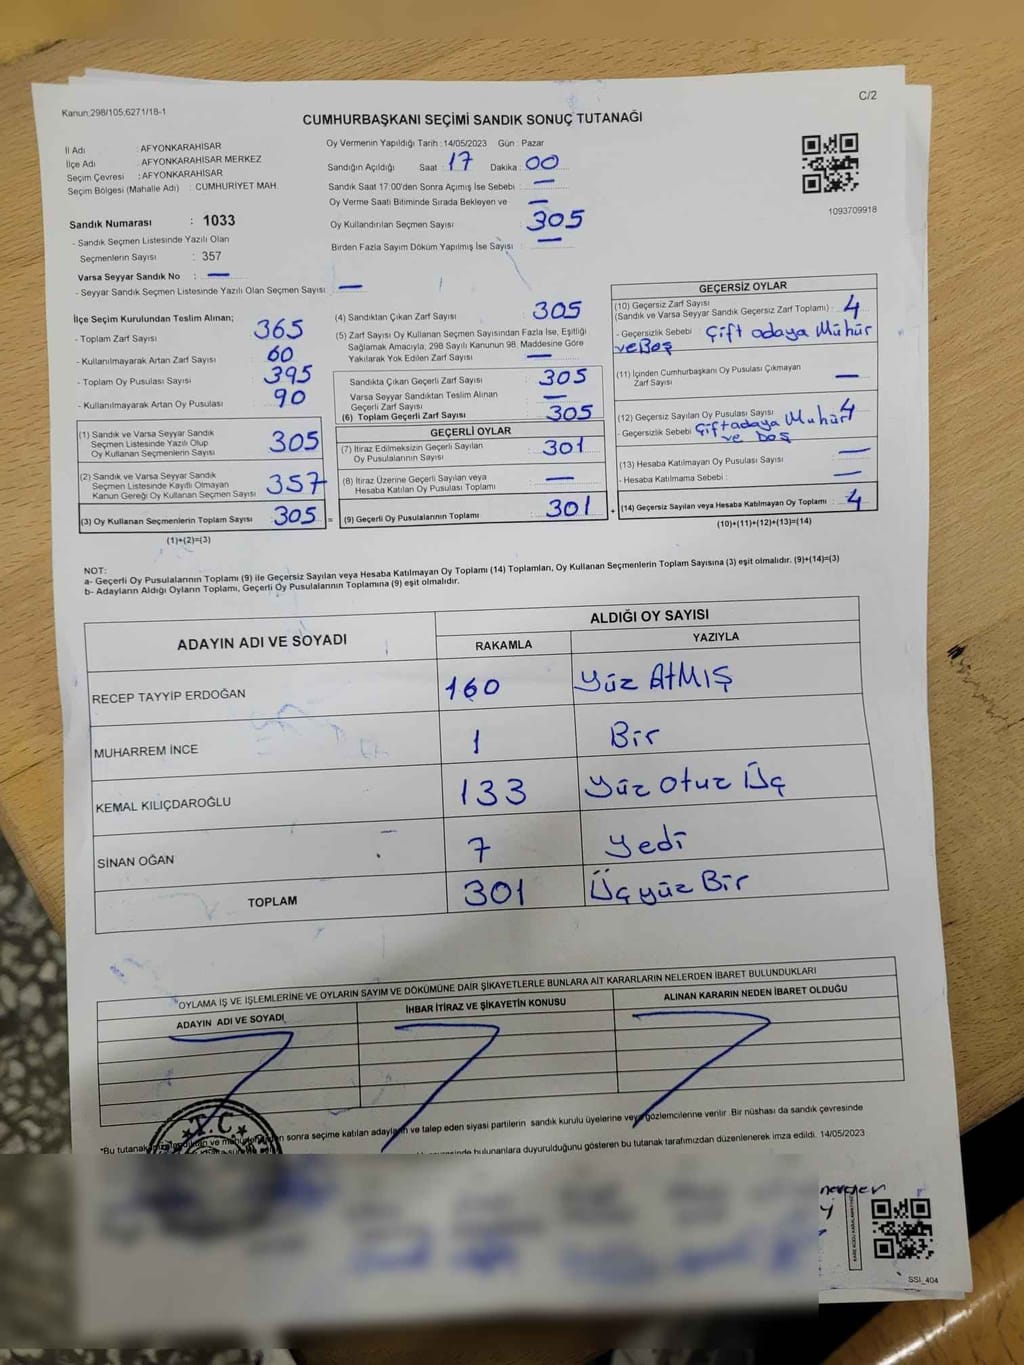 Kanun;298/105,6271/18-1
C/2
CUMHURBAŞKANI SEÇİMİ SANDIK SONUÇ TUTANAĞI
İl Adı : AFYONKARAHİSAR
İlçe Adı : AFYONKARAHİSAR MERKEZ
Seçim Çevresi : AFYONKARAHİSAR
Seçim Bölgesi (Mahalle Adı) : CUMHURİYET MAH.
Sandık Numarası : 1033
- Sandık Seçmen Listesinde Yazılı Olan
Seçmenlerin Sayısı : 357
Varsa Seyyar Sandık No : —
- Seyyar Sandık Seçmen Listesinde Yazılı Olan Seçmen Sayısı —
Oy Vermenin Yapıldığı Tarih : 14/05/2023 Gün : Pazar
Sandığın Açıldığı Saat : 17 Dakika : 00
Sandık Saat 17:00'den Sonra Açımış İse Sebebi : —
Oy Verme Saati Bitiminde Sırada Bekleyen ve —
Oy Kullandırılan Seçmen Sayısı : 305
Birden Fazla Sayım Döküm Yapılmış İse Sayısı : —
1093709918
İlçe Seçim Kurulundan Teslim Alınan;
- Toplam Zarf Sayısı 365
- Kullanılmayarak Artan Zarf Sayısı 60
- Toplam Oy Pusulası Sayısı 395
- Kullanılmayarak Artan Oy Pusulası 90
(1) Sandık ve Varsa Seyyar Sandık
Seçmen Listesinde Yazılı Olup
Oy Kullanan Seçmenlerin Sayısı 305
(2) Sandık ve Varsa Seyyar Sandık
Seçmen Listesinde Kayıtlı Olmayan
Kanun Gereği Oy Kullanan Seçmen Sayısı 357
(3) Oy Kullanan Seçmenlerin Toplam Sayısı 305 =
(1)+(2)=(3)
(4) Sandıktan Çıkan Zarf Sayısı 305
(5) Zarf Sayısı Oy Kullanan Seçmen Sayısından Fazla İse, Eşitliği
Sağlamak Amacıyla, 298 Sayılı Kanunun 98. Maddesine Göre
Yakılarak Yok Edilen Zarf Sayısı —
Sandıkta Çıkan Geçerli Zarf Sayısı 305
Varsa Seyyar Sandıktan Teslim Alınan
Geçerli Zarf Sayısı —
(6) Toplam Geçerli Zarf Sayısı 305
GEÇERLİ OYLAR
(7) İtiraz Edilmeksizin Geçerli Sayılan
Oy Pusulalarının Sayısı 301
(8) İtiraz Üzerine Geçerli Sayılan veya
Hesaba Katılan Oy Pusulası Toplamı —
(9) Geçerli Oy Pusulalarının Toplamı 301 +
GEÇERSİZ OYLAR
(10) Geçersiz Zarf Sayısı
(Sandık ve Varsa Seyyar Sandık Geçersiz Zarf Toplamı) : 4
- Geçersizlik Sebebi : Çift adaya Mühür
ve Boş
(11) İçinden Cumhurbaşkanı Oy Pusulası Çıkmayan
Zarf Sayısı —
(12) Geçersiz Sayılan Oy Pusulası Sayısı 4
- Geçersizlik Sebebi Çift adaya Muhür
ve boş
(13) Hesaba Katılmayan Oy Pusulası Sayısı —
- Hesaba Katılmama Sebebi : —
(14) Geçersiz Sayılan veya Hesaba Katılmayan Oy Toplamı 4
(10)+(11)+(12)+(13)=(14)
NOT:
a- Geçerli Oy Pusulalarının Toplamı (9) ile Geçersiz Sayılan veya Hesaba Katılmayan Oy Toplamı (14) Toplamları, Oy Kullanan Seçmenlerin Toplam Sayısına (3) eşit olmalıdır. (9)+(14)=(3)
b- Adayların Aldığı Oyların Toplamı, Geçerli Oy Pusulalarının Toplamına (9) eşit olmalıdır.
ADAYIN ADI VE SOYADI
ALDIĞI OY SAYISI
RAKAMLA YAZIYLA
RECEP TAYYİP ERDOĞAN 160 Yüz AtMIŞ
MUHARREM İNCE 1 Bir
KEMAL KILIÇDAROĞLU 133 Yüz Otuz Üç
SİNAN OĞAN 7 Yedi
TOPLAM 301 Üç yüz Bir
"OYLAMA İŞ VE İŞLEMLERİNE VE OYLARIN SAYIM VE DÖKÜMÜNE DAİR ŞİKAYETLERLE BUNLARA AİT KARARLARIN NELERDEN İBARET BULUNDUKLARI
ADAYIN ADI VE SOYADI İHBAR İTİRAZ VE ŞİKAYETİN KONUSU ALINAN KARARIN NEDEN İBARET OLDUĞU
T.C.
*Bu tutanak ve sonra seçime katılan adayların ve talep eden siyasi partilerin sandık kurulu üyelerine veya gözlemcilerine verilir. Bir nüshası da sandık çevresinde
bulunanlara duyurulduğunu gösteren bu tutanak tarafımızdan düzenlenerek imza edildi. 14/05/2023
SSI_404